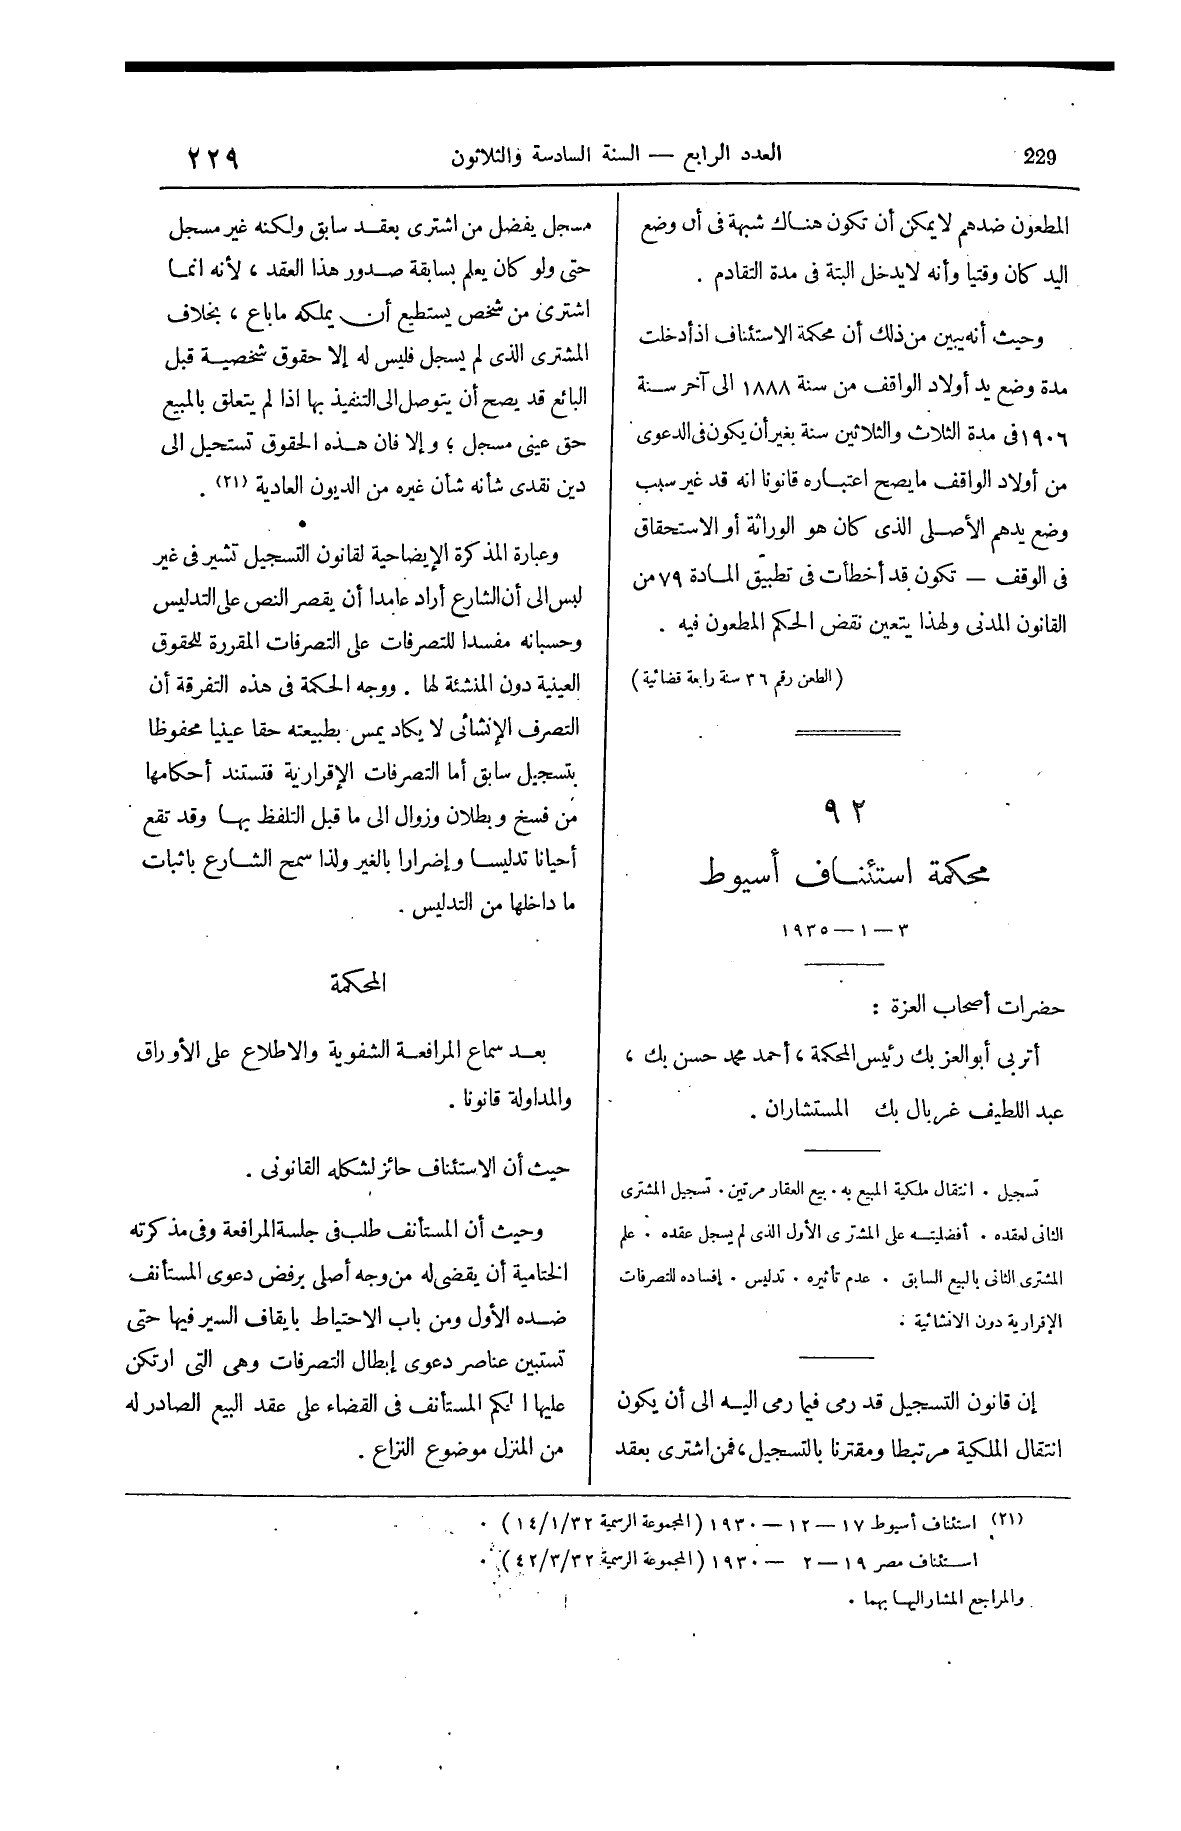 229
العدد الرابع — السنة السادسة والثلاثون
٢٢٩
المطعون ضدهم لايمكن أن تكون هناك شبهة فى أن وضع
اليد كان وقتيا وأنه لايدخل البتة فى مدة التقادم .
وحيث أنه يبين من ذلك أن محكمة الاستئناف اذ أدخلت
مدة وضع يد أولاد الواقف من سنة ١٨٨٨ الى آخر سنة
١٩٠٦ فى مدة الثلاث والثلاثين سنة بغير أن يكون فى الدعوى
من أولاد الواقف مايصح اعتباره قانونا انه قد غير سبب
وضع يدهم الأصلى الذى كان هو الوراثة أو الاستحقاق
فى الوقف — تكون قد أخطأت فى تطبيق المادة ٧٩ من
القانون المدنى ولهذا يتعين نقض الحكم المطعون فيه .
(الطعن رقم ٣٦ سنة رابعة قضائية)
٩٢
محكمة استئناف أسيوط
٣ — ١ — ١٩٣٥
حضرات أصحاب العزة :
أتربى أبو العز بك رئيس المحكمة ، أحمد محمد حسن بك ،
عبد اللطيف غربال بك المستشاران .
تسجيل . انتقال ملكية المبيع به . بيع العقار مرتين . تسجيل المشترى
الثانى لعقده . أفضليته على المشترى الأول الذى لم يسجل عقده . علم
المشترى الثانى بالبيع السابق . عدم تأثيره . تدليس . إفساده للتصرفات
الإقرارية دون الانشائية .
إن قانون التسجيل قد رمى فيما رمى اليه الى أن يكون
انتقال الملكية مرتبطا ومقترنا بالتسجيل ، فمن اشترى بعقد
مسجل يفضل من اشترى بعقد سابق ولكنه غير مسجل
حتى ولو كان يعلم بسابقة صدور هذا العقد ، لأنه انما
اشترى من شخص يستطيع أن يملكه ماباع ، بخلاف
المشترى الذى لم يسجل فليس له إلا حقوق شخصية قبل
البائع قد يصح أن يتوصل الى التنفيذ بها اذا لم يتعلق بالمبيع
حق عينى مسجل ؛ وإلا فان هذه الحقوق تستحيل الى
دين نقدى شأنه شأن غيره من الديون العادية (٢١) .
وعبارة المذكرة الإيضاحية لقانون التسجيل تشير فى غير
لبس الى أن الشارع أراد عامدا أن يقصر النص على التدليس
وحسبانه مفسدا للتصرفات على التصرفات المقررة للحقوق
العينية دون المنشئة لها . ووجه الحكمة فى هذه التفرقة أن
التصرف الإنشائى لا يكاد يمس بطبيعته حقا عينيا محفوظا
بتسجيل سابق أما التصرفات الإقرارية فتستند أحكامها
من فسخ وبطلان وزوال الى ما قبل التلفظ بها وقد تقع
أحيانا تدليسا وإضرارا بالغير ولذا سمح الشارع باثبات
ما داخلها من التدليس .
المحكمة
بعد سماع المرافعة الشفوية والاطلاع على الأوراق
والمداولة قانونا .
حيث أن الاستئناف حائز لشكله القانونى .
وحيث أن المستأنف طلب فى جلسة المرافعة وفى مذكرته
الختامية أن يقضى له من وجه أصلى برفض دعوى المستأنف
ضده الأول ومن باب الاحتياط بايقاف السير فيها حتى
تستبين عناصر دعوى إبطال التصرفات وهى التى ارتكن
عليها المستأنف فى القضاء على عقد البيع الصادر له
من المنزل موضوع النزاع .
(٢١) استئناف أسيوط ١٧ — ١٢ — ١٩٣٠ (المجموعة الرسمية ١٤/١/٣٢) .
استئناف مصر ١٩ — ٢ — ١٩٣٠ (المجموعة الرسمية ٤٢/٣/٣٢) .
والمراجع المشار اليها بهما .